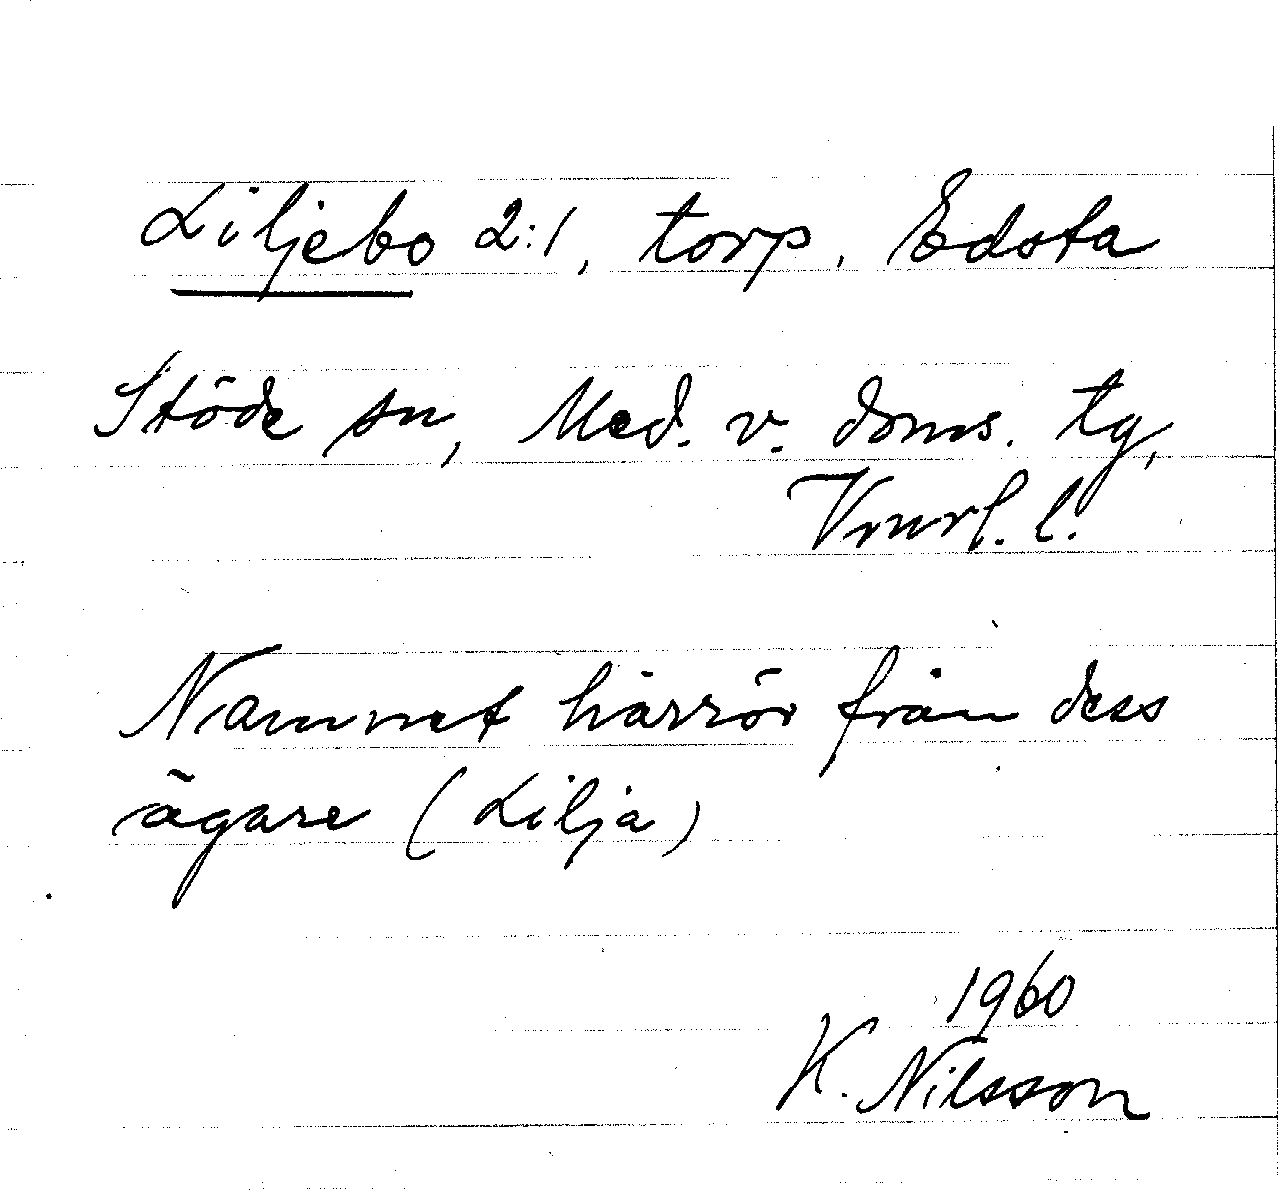 Liljebo 2:1, torp, Edsta
Stöde sn, Med. v. doms. tg,
Vnrl. l.
Namnet härrör från dess
ägare (Lilja)
1960
K. Nilsson